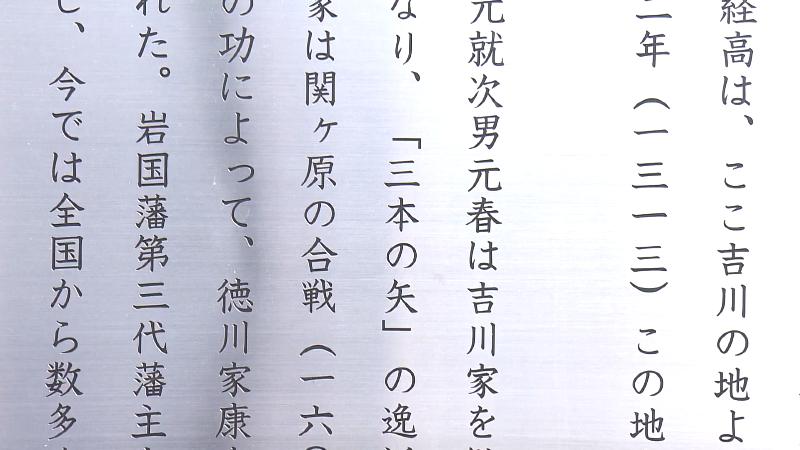 経高は、ここ吉川の地よ
二年（一三一三）この地
元就次男元春は吉川家を
なり、「三本の矢」の逸
家は関ヶ原の合戦（一六
の功によって、徳川家康
れた。岩国藩第三代藩主
し、今では全国から数多